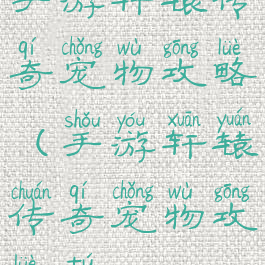 手游轩辕传
qí chǒng wù gōng lüè
奇宠物攻略
shǒu yóu xuān yuán
（手游轩辕
chuán qí chǒng wù gōng
传奇宠物攻
lüè tú